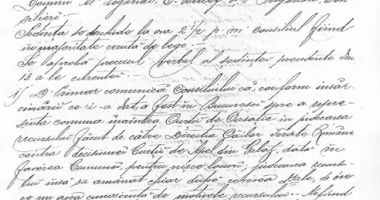 Sedința se deschide la ora 2 1/2 p. m. consiliul fiind
în majoritate cerută de lege.
Se aprobă procesul verbal al ședinței precedente din
13 a le curentei
1) D. Primar comunică Consiliului că, conform însăr-
cinărei ce i-a dat, a fost în București spre a repre-
zinta comuna înaintea Curței de Casație în judecarea
recursului făcut de către Direcția Căilor Ferate Române
contra decisiunei Curței de Apel din Galați, dată în
favoarea Comunei, pentru nisce locuri; judecarea recur-
sului însă s'a amânat după cererea de
ce nu avea cunoscința de motivele recursului.